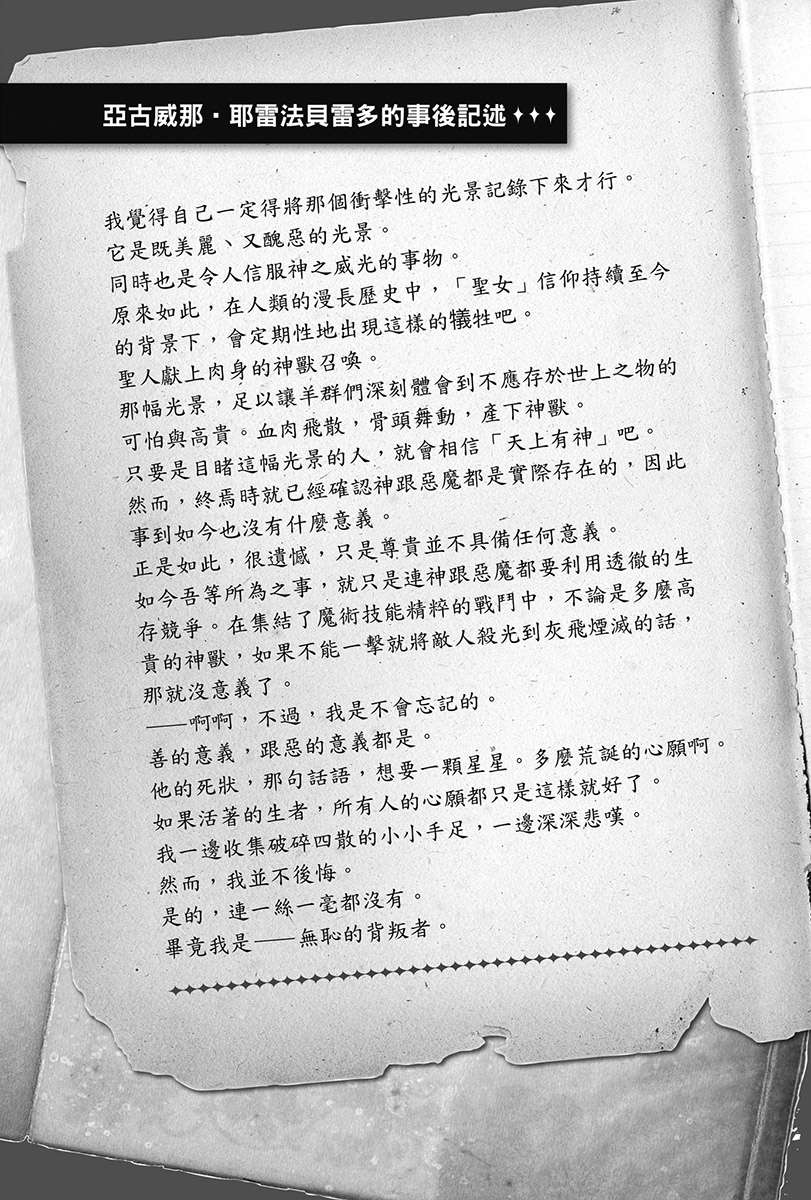 亞古威那・耶雷法貝雷多的事後記述✦✦✦
我覺得自己一定得將那個衝擊性的光景記錄下來才行。
它是既美麗、又醜惡的光景。
同時也是令人信服神之威光的事物。
原來如此，在人類的漫長歷史中，「聖女」信仰持續至今
的背景下，會定期性地出現這樣的犧牲吧。
聖人獻上肉身的神獸召喚。
那幅光景，足以讓羊群們深刻體會到不應存於世上之物的
可怕與高貴。血肉飛散，骨頭舞動，產下神獸。
只要是目睹這幅光景的人，就會相信「天上有神」吧。
然而，終焉時就已經確認神跟惡魔都是實際存在的，因此
事到如今也沒有什麼意義。
正是如此，很遺憾，只是尊貴並不具備任何意義。
如今吾等所為之事，就只是連神跟惡魔都要利用透徹的生
存競爭。在集結了魔術技能精粹的戰鬥中，不論是多麼高
貴的神獸，如果不能一擊就將敵人殺光到灰飛煙滅的話，
那就沒意義了。
——啊啊，不過，我是不會忘記的。
善的意義，跟惡的意義都是。
他的死狀，那句話語，想要一顆星星。多麼荒誕的心願啊。
如果活著的生者，所有人的心願都只是這樣就好了。
我一邊收集破碎四散的小小手足，一邊深深悲嘆。
然而，我並不後悔。
是的，連一絲一毫都沒有。
畢竟我是——無恥的背叛者。